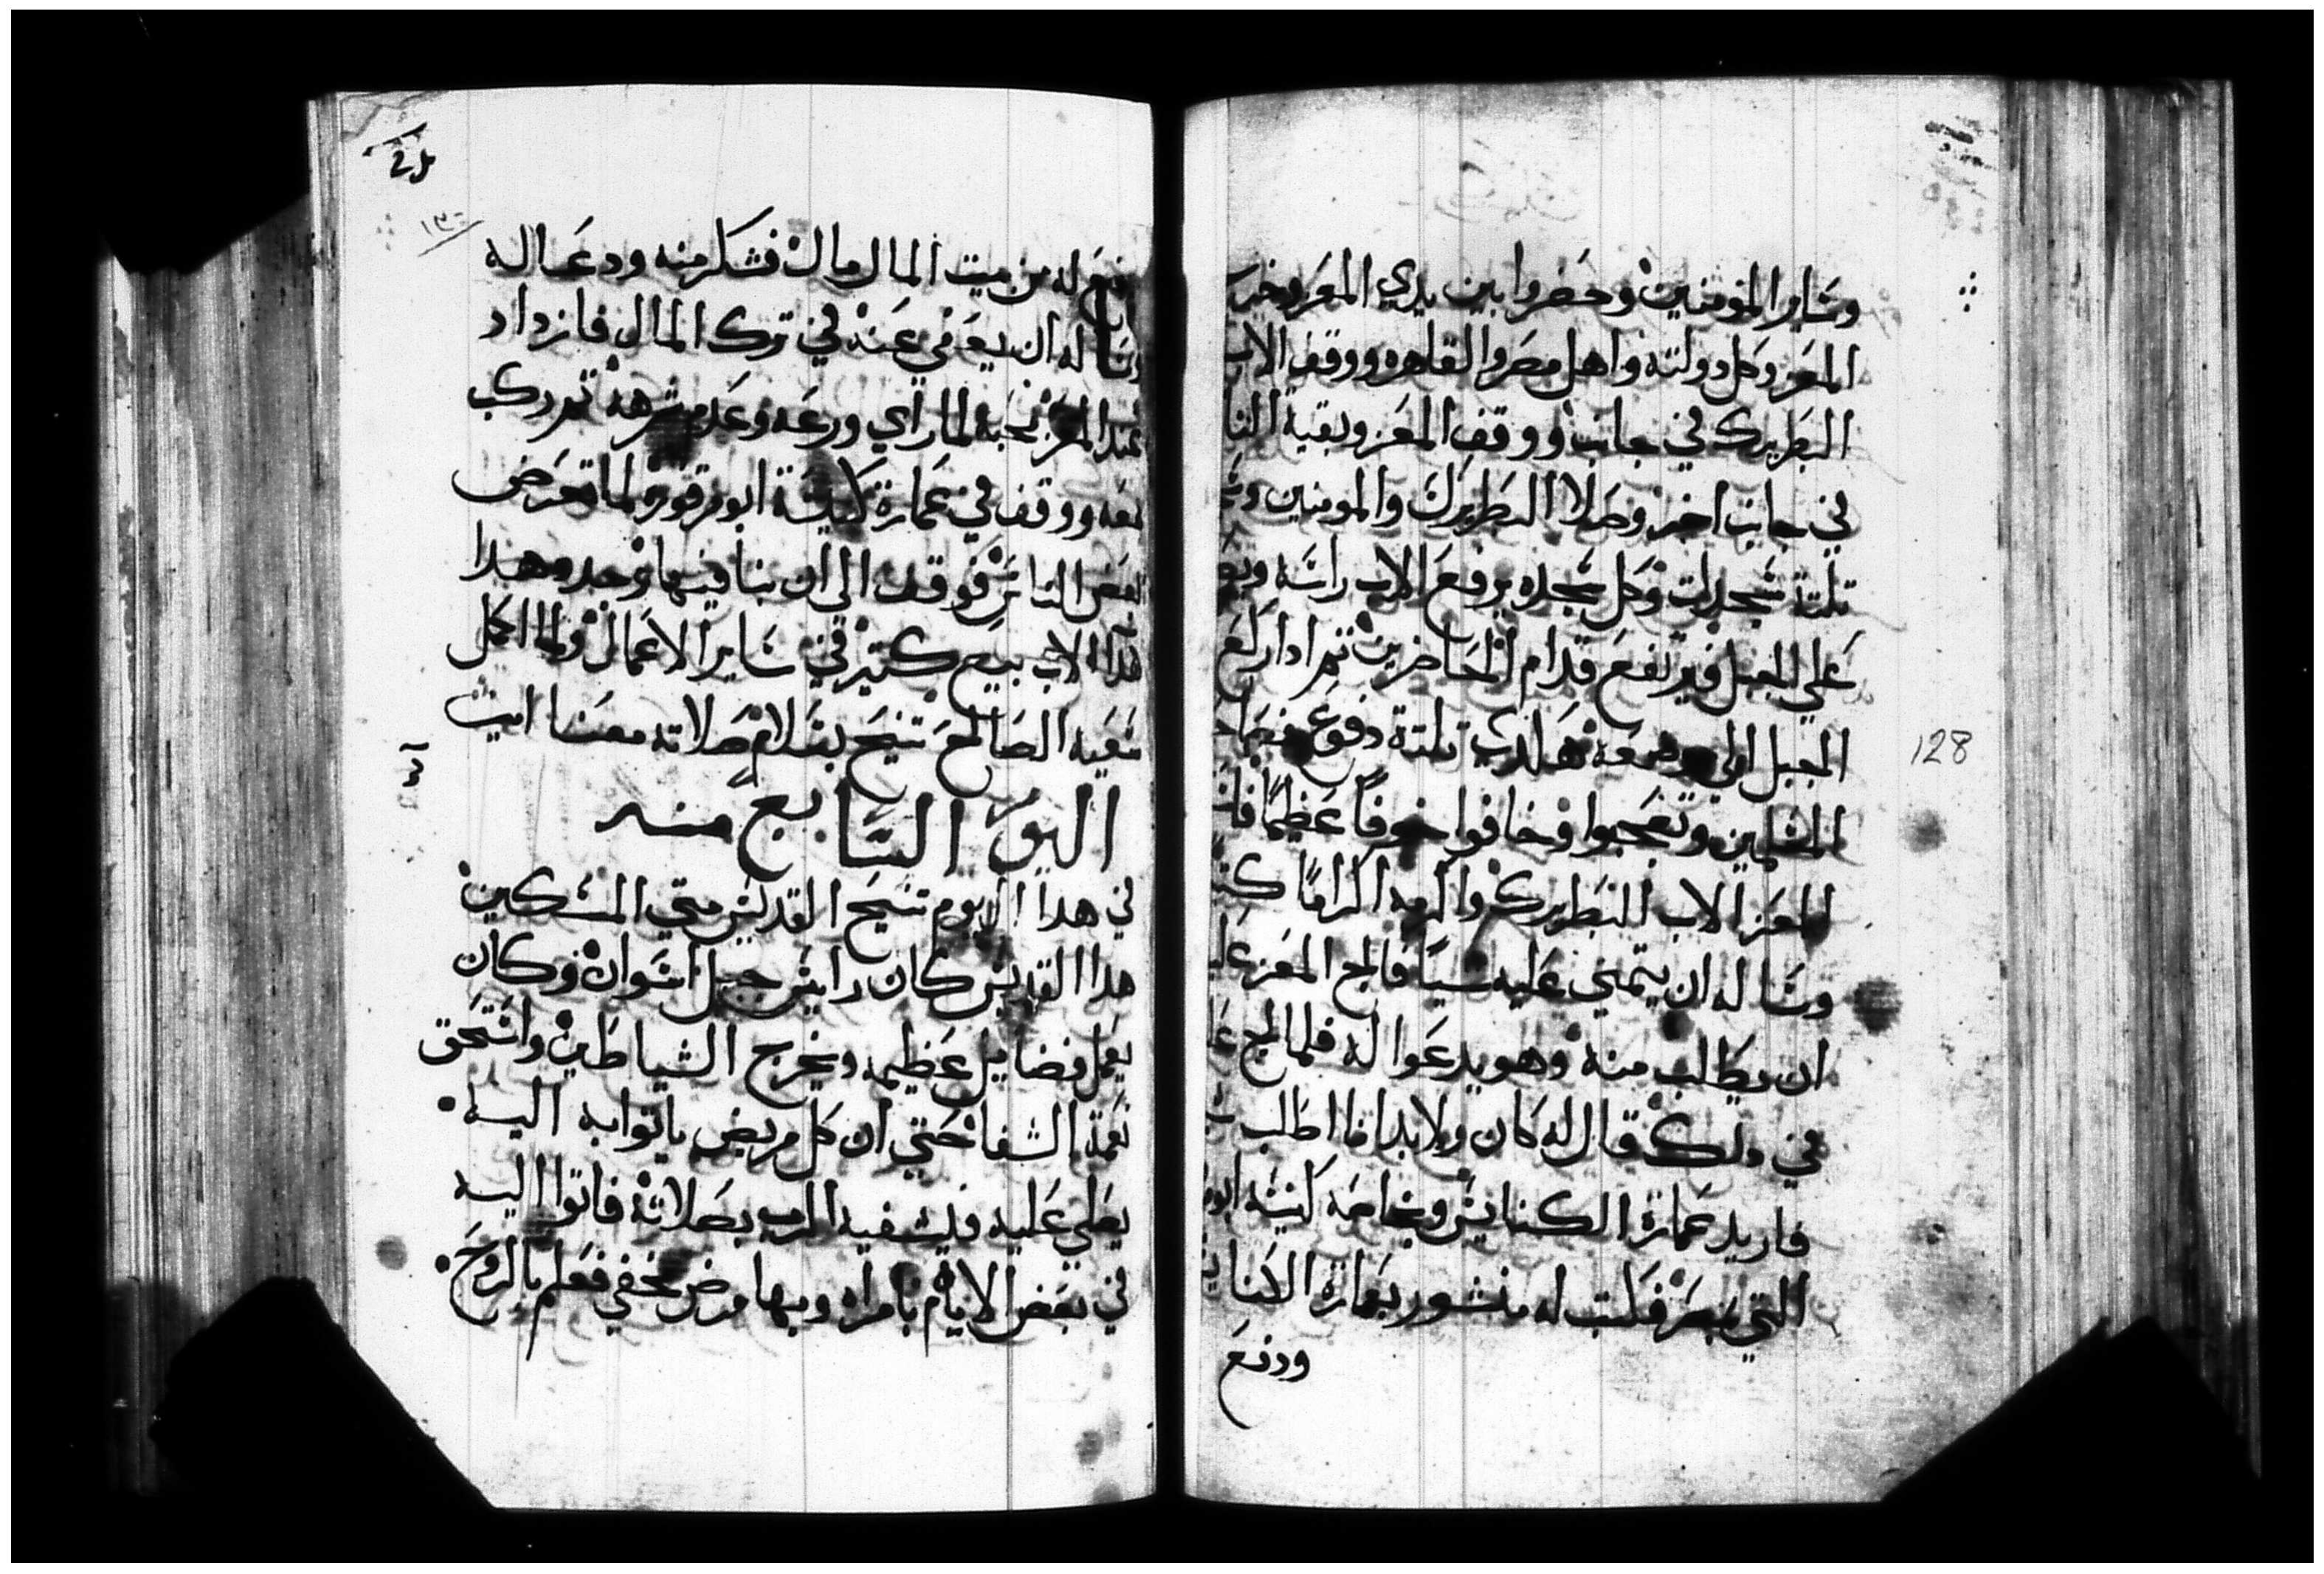 وساير المومنين وحضروا بين يدي المعز وخرج
المعز وكل دولته واهل مصر والقاهره ووقف الاب
البطريرك في جانب ووقف المعز وبقية النا
في جانب اخر وصلا البطريرك والمومنين
تلتة سجدات وكل سجده يرفع الاب راسه
علي الجبل فيرتفع قدام الحاضرين تم ادا ركع
الجبل الي هكدي تلتة دفوع
المسلمين وتعجبوا وخافوا خوفًا عظيمًا
المعز الاب البطريرك واكرمه اكرامًا
وساله ان يتمني عليه سيا فالج المعز
ان يطالب منه وهو يدعوا له فلما لج
في دلك قال له كان ولابد انا اطلب
فاريد عمارة الكنايس وخاصه كنيسه
التي بمصر فكتب له منشور بعمارة
ودفع
128
دفع له من بيت المال مال فشكر منه ودعا له
وساله ان يعفي عنه في ترك المال فازداد
عند المعز محبة لما راي ورعه وعدم شرهه تم ركب
معه ووقف في عمارة كنيسة ابو مرقوره لما تعرض
بعض الناس فوقف الي ان بنا فيها وجدد هدا
هدا الاب بيع كتير في ساير الاعمال ولما اكمل
سعيه الصالح تنيح بسلام صلاته معنا امين
اليوم السابع منه
في هدا اليوم تنيح القديس متي المسكين
هدا القديس كان رايس جبل اسوان وكان
يعمل فضايل عظيمه ويخرج الشياطين واستحق
نعمة الشفا حتي ان كل مريض ياتوا به اليه
يصلي عليه فيشفيه الرب بصلاته فاتوا اليه
في بعض الايام بامراه وبها مرض مخفي فعلم بالروح
١٣٠